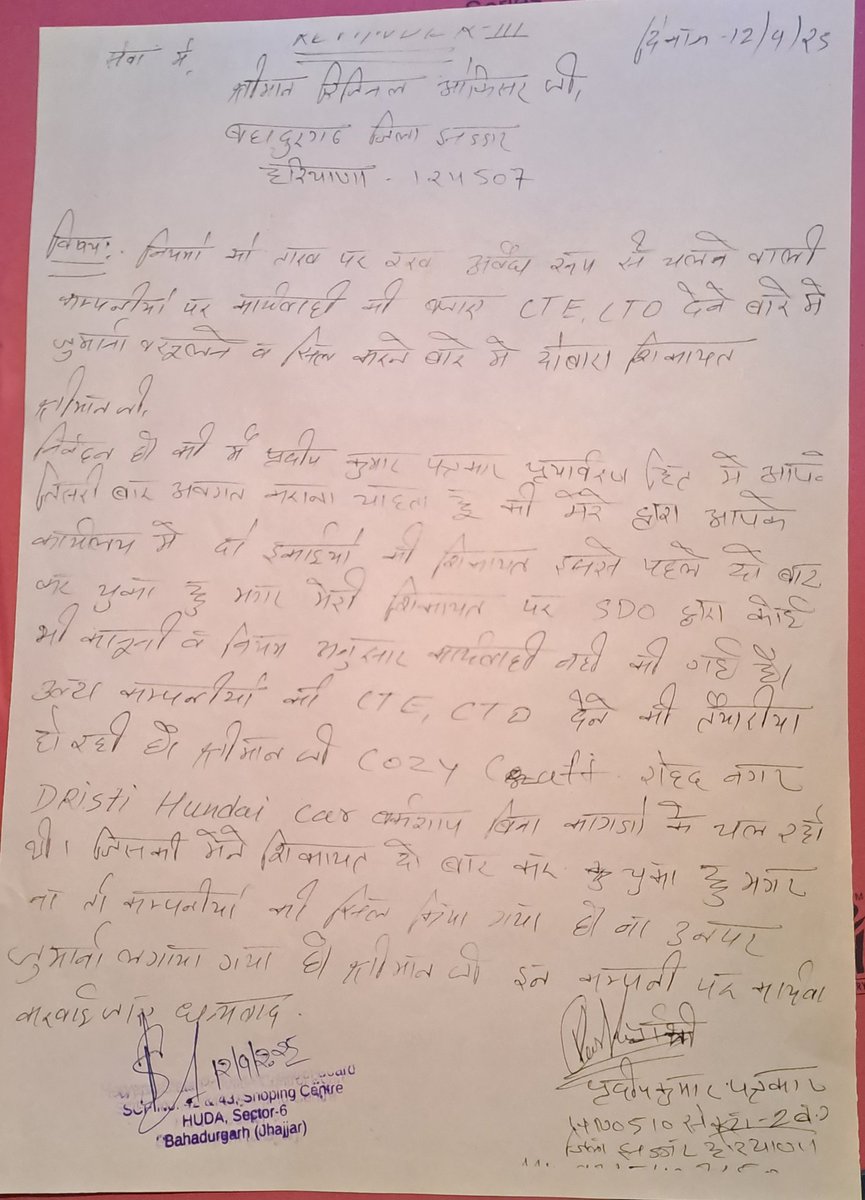 REMINDER-III
दिनांक-12/9/25
सेवा में,
श्रीमान रिजिनल ऑफिसर जी,
बहादुरगढ जिला झज्जर
हरियाणा - 124507
विषय:- नियमों को ताख पर रख अवैध रूप से चलने वाली
कम्पनीयों पर कार्यवाही की बजाए CTE, CTO देने बारे में
जुर्माना वसूलने व सिल करने बारे में दोबारा शिकायत
श्रीमान जी,
निवेदन है की मैं प्रदीप कुमार पत्रकार प्रयार्वरण हित में आपके
तिसरी बार अवगत कराना चाहता हूं की मेरे द्वारा आपके
कार्यालय में दो इकाईयों की शिकायत इससे पहले दो बार
कर चुका हु मगर मेरी शिकायत पर SDO द्वारा कोई
भी कानूनी व नियम अनुसार कार्यवाही नही की गई है।
उल्टा कम्पनीयों को CTE, CTO देने की तैयारीया
हो रही है। श्रीमान जी COZY रोहद नगर
DRisti Hundai Car वर्कशाप बिना कागजों के चल रही
थी। जिसकी मैंने शिकायत दो बार कर चुका हु मगर
ना तो कम्पनीयों को सिल किया गया है ना उनपर
जुर्माना लगाया गया है। श्रीमान जी इन कम्पनी पर कार्यवा
करवाई जाए धन्यवाद.
12/9/2025
प्रदीप कुमार पत्रकार
जिला झज्जर हरियाणा
Shoping Centre
HUDA, Sector-6
Bahadurgarh (Jhajjar)